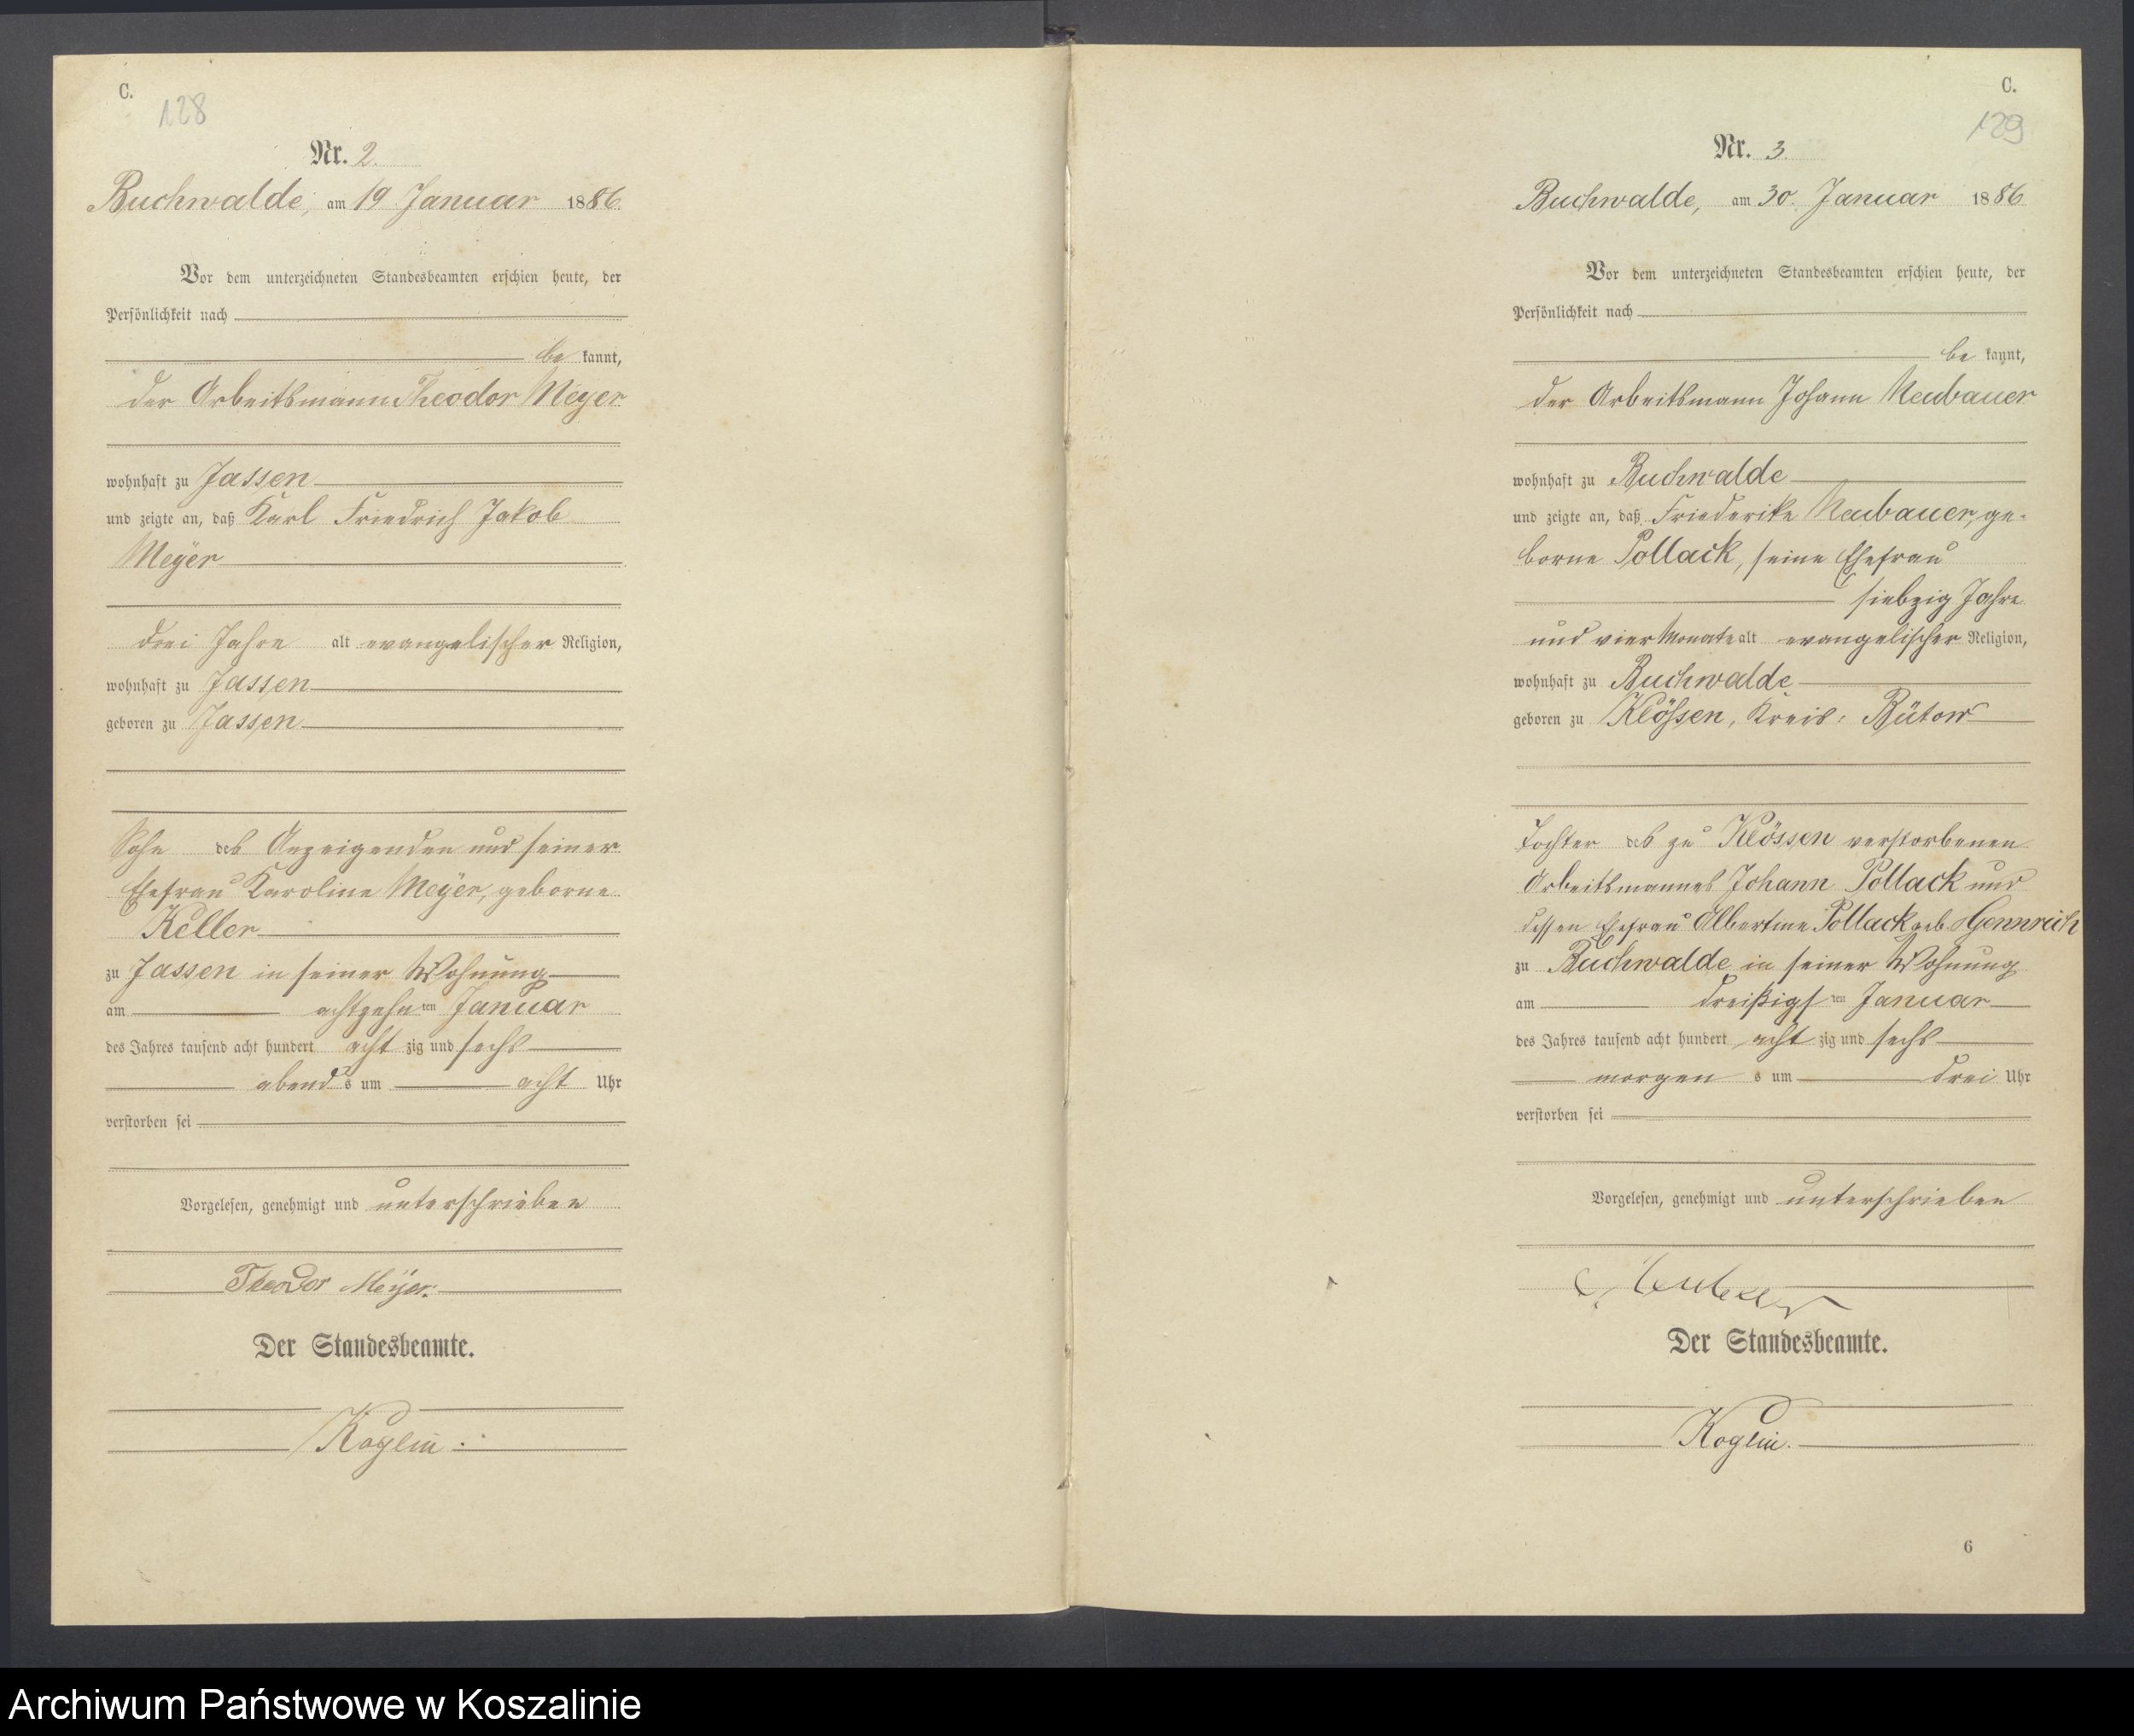 C.
128
Nr. 2.
Buchwalde, am 19. Januar 1886.
Vor dem unterzeichneten Standesbeamten erschien heute, der
Persönlichkeit nach
be kannt,
der Arbeitsmann Theodor Meyer
wohnhaft zu Jassen
und zeigte an, daß Karl Friedrich Jakob
Meÿer
drei Jahre alt evangelischer Religion,
wohnhaft zu Jassen
geboren zu Jassen
Sohn des Anzeigenden und seiner
Ehefrau Karoline Meÿer, geborne
Keller
zu Jassen in seiner Wohnung
am achtzehn ten Januar
des Jahres tausend acht hundert acht zig und sechs
abend s um acht Uhr
verstorben sei
Vorgelesen, genehmigt und unterschrieben
Theodor Meÿer.
Der Standesbeamte.
Koglin.
C.
129
Nr. 3.
Buchwalde, am 30. Januar 1886
Vor dem unterzeichneten Standesbeamten erschien heute, der
Persönlichkeit nach
be kannt,
der Arbeitsmann Johann Neubauer
wohnhaft zu Buchwalde
und zeigte an, daß Friederike Neubauer, ge-
borne Pollack, seine Ehefrau
siebzig Jahre
und vier Monate alt evangelischer Religion,
wohnhaft zu Buchwalde
geboren zu Klößen, Kreis: Bütow
Tochter des zu Klössen verstorbenen
Arbeitsmannes Johann Pollack und
dessen Ehefrau Albertine Pollack geb. Gennrich
zu Buchwalde in seiner Wohnung
am dreißigs ten Januar
des Jahres tausend acht hundert acht zig und sechs
morgen s um drei Uhr
verstorben sei
Vorgelesen, genehmigt und unterschrieben
Neubauer
Der Standesbeamte.
Koglin.
6
Archiwum Państwowe w Koszalinie